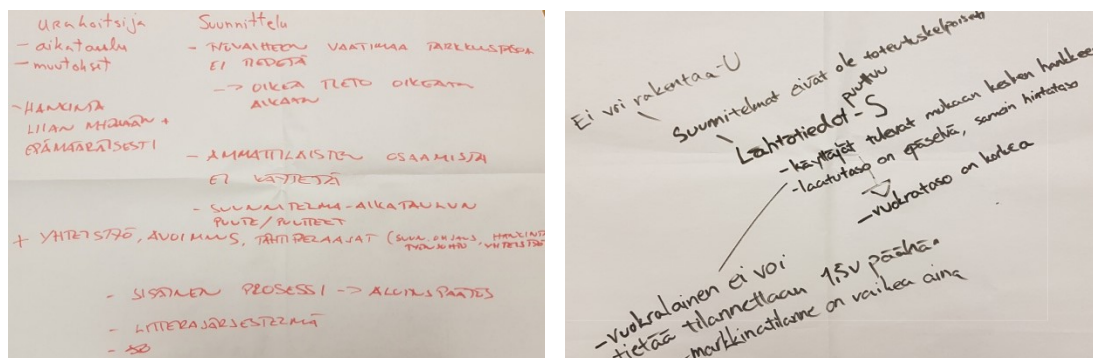 Urakoitsija
- aikataulu
- muutokset
- HANKINTA
LIIAN MYÖHÄÄN +
EPÄMÄÄRÄISESTI
Suunnittelu
- VAATIMAA TARKKUSTASOA
EI TIEDETÄ
-> OIKEA TIETO OIKEAAN
AIKAAN
- AMMATTILAISTEN OSAAMISTA
EI KÄYTETÄ
- SUUNNITELMA-AIKATAULUN
PUUTE/PUUTTEET
+ YHTEISTYÖ, AVOIMUUS, TÄHTIPELAAJAT (SUUN.OHJAUS, HANKINTA
YHTEISTYÖ
- SISÄINEN PROSESSI ->
- LITTERAJÄRJESTELMÄ
Ei voi rakentaa-U
Suunnitelmat eivät ole toteutuskelpoiset
puuttuu
Lähtötiedot-S
- käyttäjät tulevat mukaan kesken hankkeen
- laatutaso on epäselvä, samoin hintataso
- vuokrataso on korkea
- vuokralainen ei voi
tietää tilannettaan 1,5v päähän.
- markkinatilanne on vaikea aina